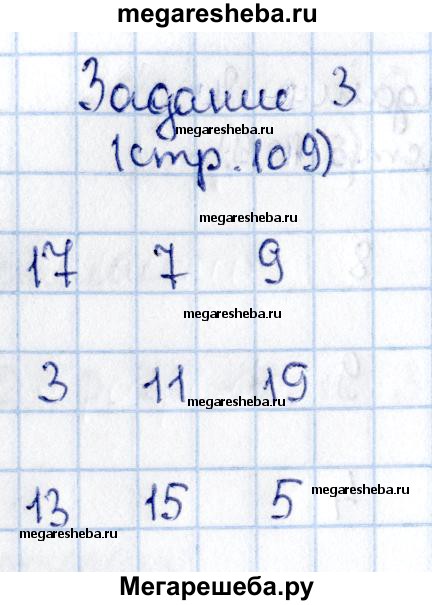 megaresheba.ru
Задание 3
megaresheba.ru
(стр. 109)
megaresheba.ru
17 7 9
megaresheba.ru
3 11 19
megaresheba.ru
13 15 5
megaresheba.ru
megaresheba.ru
Мегарешеба.ру